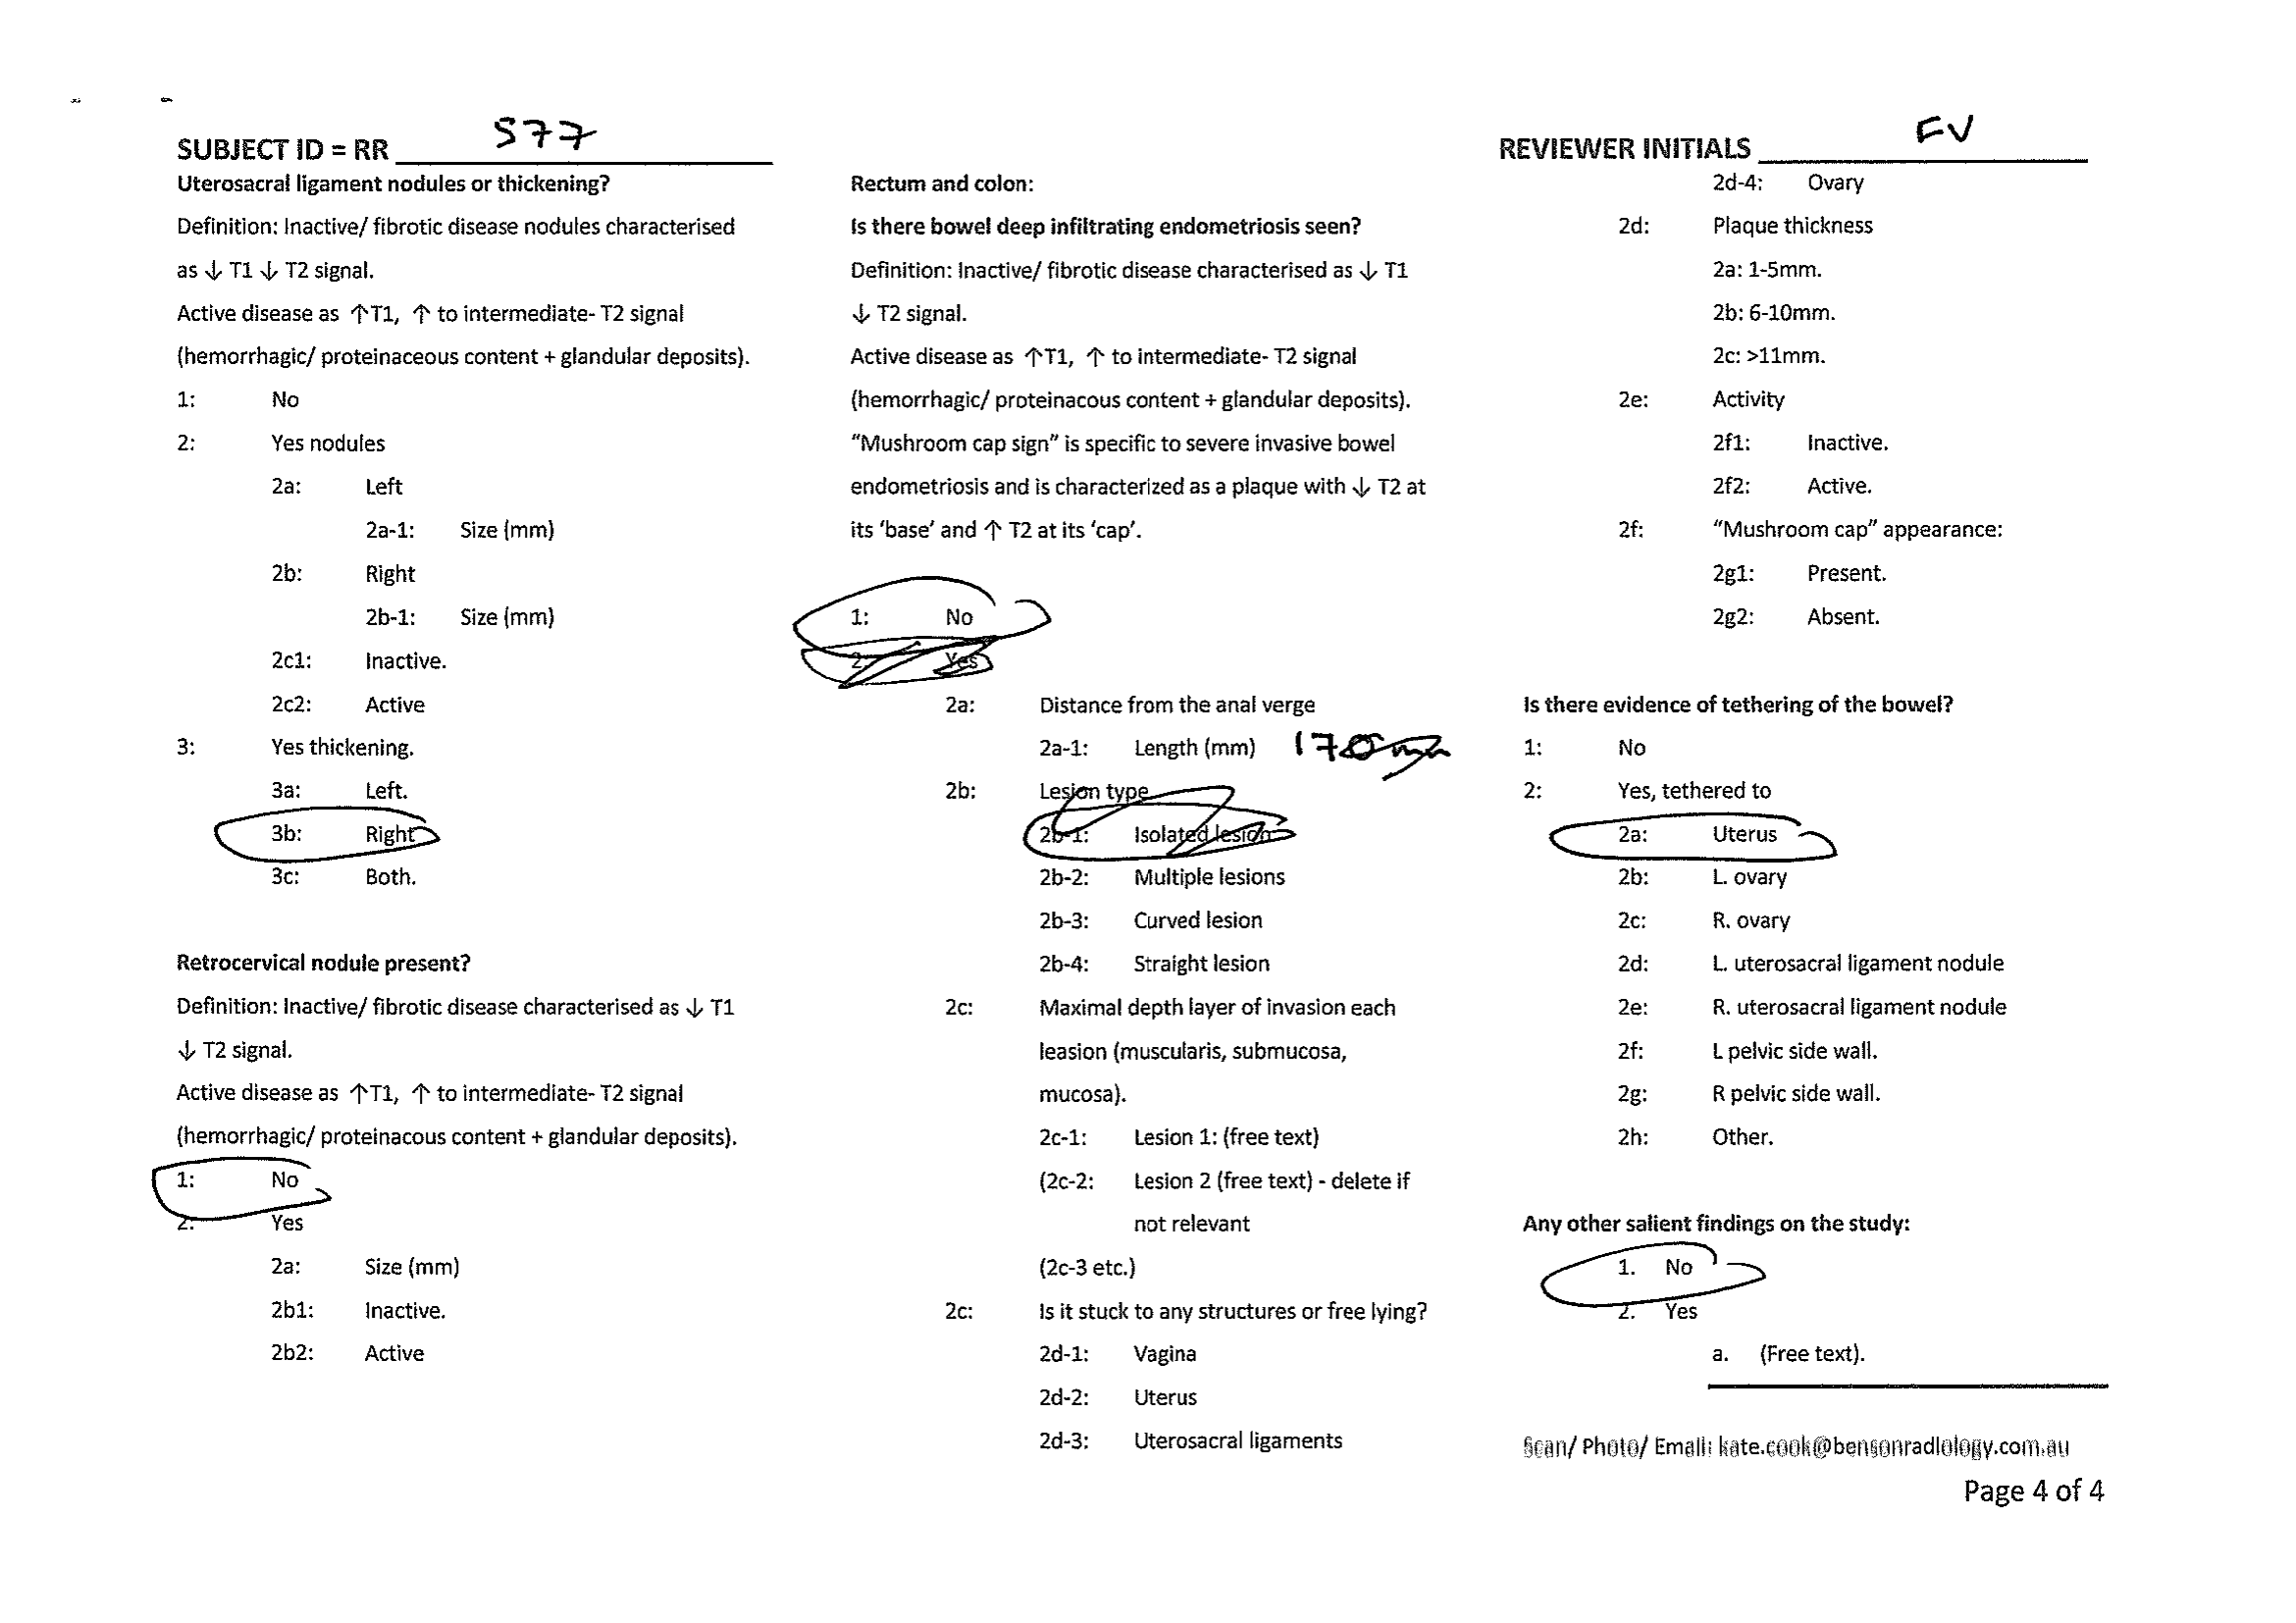 SUBJECT ID = RR 577
REVIEWER INITIALS FV
Uterosacral ligament nodules or thickening?
Definition: Inactive/ fibrotic disease nodules characterised
as ↓ T1 ↓ T2 signal.
Active disease as ↑T1, ↑ to intermediate- T2 signal
(hemorrhagic/ proteinaceous content + glandular deposits).
1: No
2: Yes nodules
2a: Left
2a-1: Size (mm)
2b: Right
2b-1: Size (mm)
2c1: Inactive.
2c2: Active
3: Yes thickening.
3a: Left.
3b: Right
3c: Both.
Retrocervical nodule present?
Definition: Inactive/ fibrotic disease characterised as ↓ T1
↓ T2 signal.
Active disease as ↑T1, ↑ to intermediate- T2 signal
(hemorrhagic/ proteinacous content + glandular deposits).
1: No
2: Yes
2a: Size (mm)
2b1: Inactive.
2b2: Active
Rectum and colon:
Is there bowel deep infiltrating endometriosis seen?
Definition: Inactive/ fibrotic disease characterised as ↓ T1
↓ T2 signal.
Active disease as ↑T1, ↑ to intermediate- T2 signal
(hemorrhagic/ proteinacous content + glandular deposits).
“Mushroom cap sign” is specific to severe invasive bowel
endometriosis and is characterized as a plaque with ↓ T2 at
its ‘base’ and ↑ T2 at its ‘cap’.
1: No
2: Yes
2a: Distance from the anal verge
2a-1: Length (mm) 170 mm
2b: Lesion type
2b-1: Isolated lesion
2b-2: Multiple lesions
2b-3: Curved lesion
2b-4: Straight lesion
2c: Maximal depth layer of invasion each
leasion (muscularis, submucosa,
mucosa).
2c-1: Lesion 1: (free text)
(2c-2: Lesion 2 (free text) - delete if
not relevant
(2c-3 etc.)
2c: Is it stuck to any structures or free lying?
2d-1: Vagina
2d-2: Uterus
2d-3: Uterosacral ligaments
2d-4: Ovary
2d: Plaque thickness
2a: 1-5mm.
2b: 6-10mm.
2c: >11mm.
2e: Activity
2f1: Inactive.
2f2: Active.
2f: “Mushroom cap” appearance:
2g1: Present.
2g2: Absent.
Is there evidence of tethering of the bowel?
1: No
2: Yes, tethered to
2a: Uterus
2b: L. ovary
2c: R. ovary
2d: L. uterosacral ligament nodule
2e: R. uterosacral ligament nodule
2f: L pelvic side wall.
2g: R pelvic side wall.
2h: Other.
Any other salient findings on the study:
1. No
2. Yes
a. (Free text).
Scan/ Photo/ Email: kate.cook@bensonradiology.com.au
Page 4 of 4